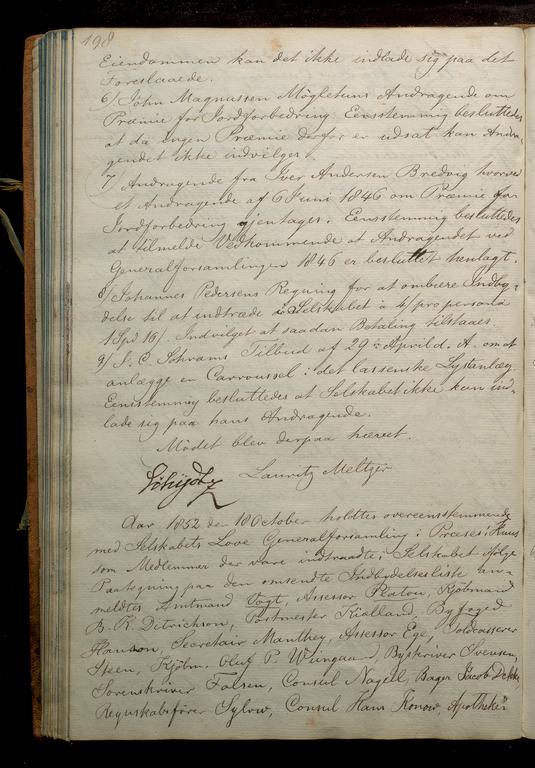 198
Eiendommen kan det ikke indlade sig paa det
Foreslaaede.
6/ John Magnussen Mögletuns Andragende om
Præmie for Jordforbedring. Eensstemmig besluttedes
at da ingen Præmie derfor er udsat kan Andra-
gendet ikke indvilges.
7/ Andragende fra Iver Andersen Bredvig hvorved
et Andragende af 6 Juni 1846 om Præmie for
Jordforbedring gjentages. Eensstemmig besluttedes
at tilmelde Vedkommende at Andragendet ved
Generalforsamlingen 1846 er besluttet henlagt.
8/ Johannes Pedersens Regning for at ombære Indby-
delse til at indtræde i Selskabet à 4/ pro persona
1 Spd 16/. Indvilget at saadan Betaling tilstaaes.
9/ S. C. Schrams Tilbud af 29de April d. A. om at
anlægge en Carroussel i det lassenske Lystanlæg.
Eensstemmig besluttedes at Selskabet ikke kan ind-
lade sig paa hans Andragende.
Mödet blev derpaa hævet.
Lauritz Meltzer
Aar 1852 den 18 October holdtes overeensstemmende
med Selskabets Love Generalforsamling i Præses's Huus
som Medlemmer der vare indtraadte i Selskabet ifølge
Paategning paa den omsendte Indbydelsesliste an-
meldtes Amtmand Vogt, Assessor Platou, Kjöbmand
B. K. Ditrichson, Postmester Kialland, Byfoged
Hanson, Secretair Manthey, Assessor Ege, Toldcasserer
Steen, Kjöbm. Oluf P. Wiingaard, Byskriver Svensen,
Sorenskriver Falsen, Consul Nagell, Bager Jacob Dekke,
Regnskabsförer Sylow, Consul Hans Konow, Apotheker